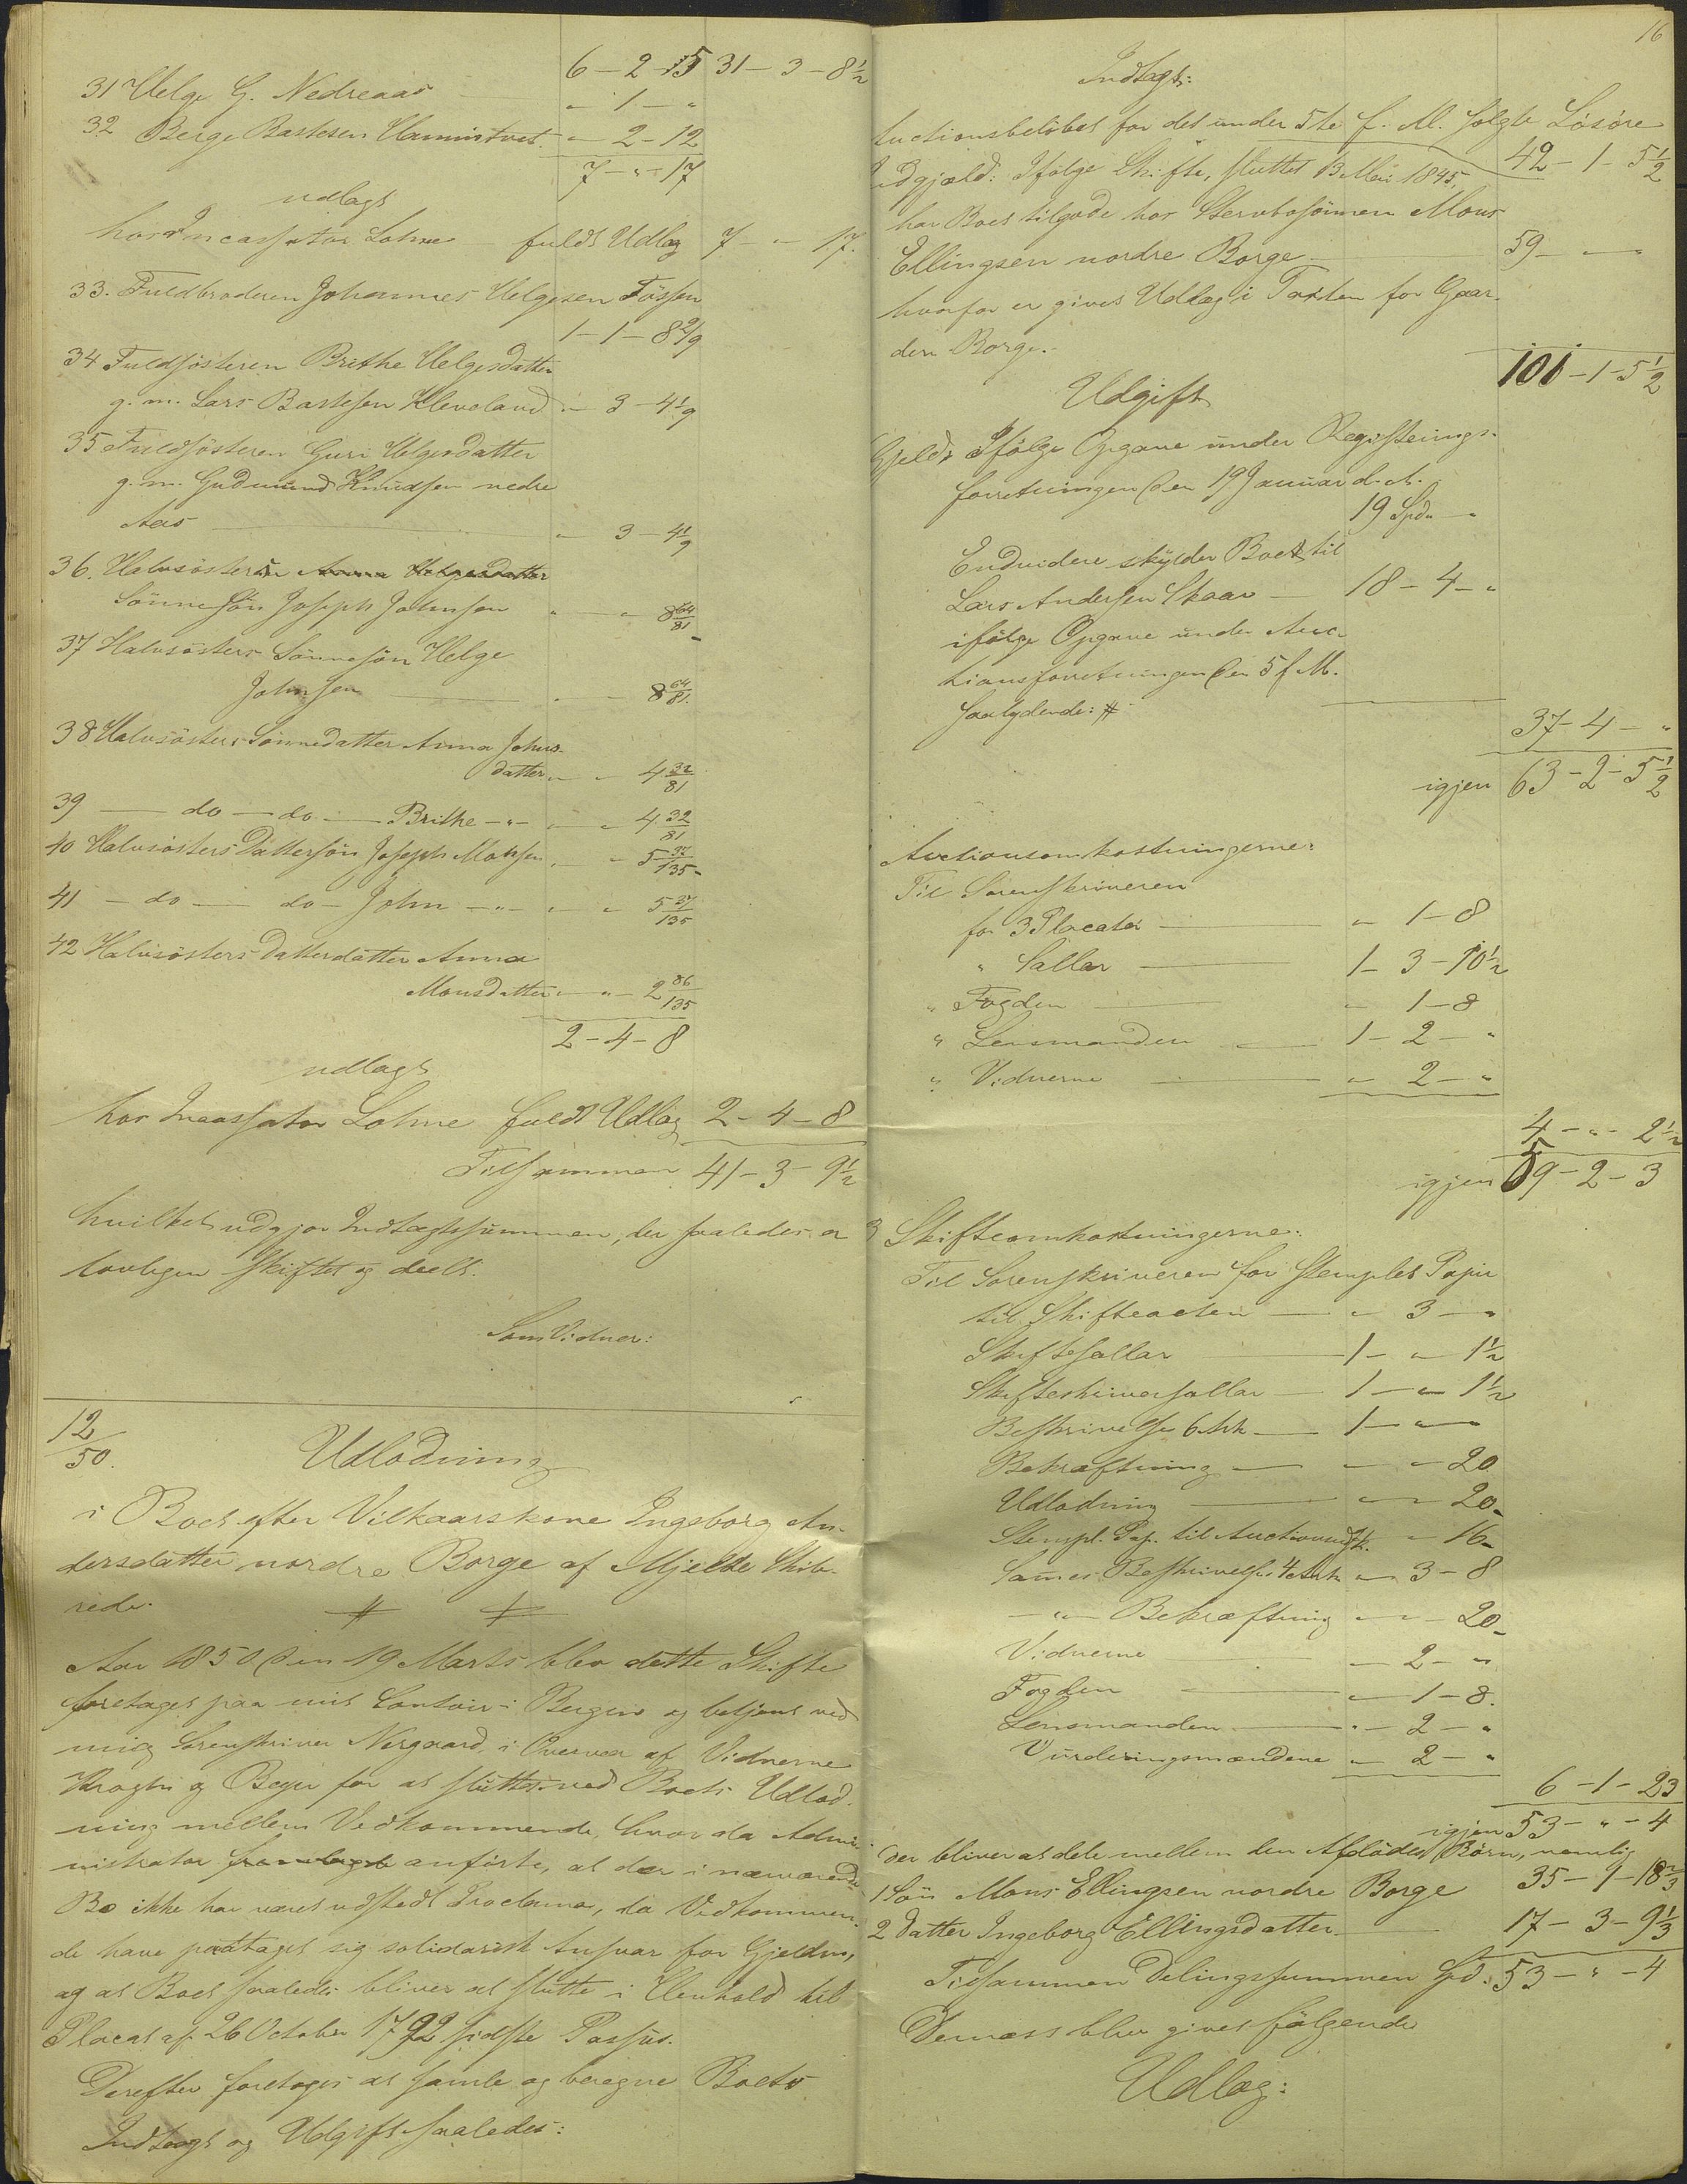 6 - 2 - 15 31 - 3 - 8½
31 Helge G. Nedreaas - 1 - "
32 Berge Bastesen - 2 - 12
7 - " - 17
udlagt
hos Incassator Lohne - fuldt Udlæg 7 - " - 17.
33. Fuldbroderen Johannes Helgesen Fössen
1 - 1 - 8 2/9
34 Fuldsösteren Brithe Helgesdatter
g. m. Lars Bastesen Kleveland " - 3 - 4 1/9
35 Fuldsösteren Guri Helgesdatter
g. m. Gudmund Knudsen nedre
Aas " 3 - 4 1/9
36. Halvsösters Anna Helgesdatter
Sönnesön Joseph Johnsen " - " 8 64/81
37 Halvsösters Sönnesön Helge
Johnsen " - 8 64/81
38 Halvsösters Sönnedatter Anna Johns-
datter " - " 4 32/81
39 - do - do - Brithe - " - " - " 4 32/81
40 Halvsösters Dattersön Joseph Monsen " - " 5 37/135
41 - do - do - John - " - " - " 5 37/135
42 Halvsösters Datterdatter Anna
Monsdatter " - " - 2 86/135
2 - 4 - 8
udlagt
hos Incassator Lohne fuldt Udlæg 2 - 4 - 8
Tilsammen 41 - 3 - 9½
hvilket udgjör Indtægtssummen, der saaledes er
lovligen skiftet og deelt.
Som Vidner:
12/50. Udlodning
i Boet efter Vilkaarskone Ingeborg An-
dersdatter nordre Borge af Mjelde Skib-
rede.
Aar 1850 den 19 Marts blev dette Skifte
foretaget paa mit Contoir i Bergen og betjent ved
mig Sorenskriver Nergaard, i Overvær af Vidnerne
Krogh og Beyer for at sluttes ved Boets Udlod-
ning mellem Vedkommende, hvor da Admi-
nistrator fremlagde anförte, at der i nærværende
Bo ikke har været udstedt Proclama, da Vedkommen-
de have paataget sig solidarisk Ansvar for Gjelden,
og at Boet saaledes bliver at slutte i Henhold til
Placat af 26 October 1792 sidste Passus.
Derefter foretoges at samle og beregne Boets
Indtægt og Udgift saaledes:
16
Indtægt:
Auctionsbelöbet for det under 5te f. M. solgte Lösöre
42 - 1 - 5½
Udgjæld: Ifölge Skifte, sluttet 13 Mai 1845,
har Boet tilgode hos Stervbosönnen Mons
Ellingsen nordre Borge 59 - " - "
hvorfor er givet Udlæg i Taxten for Gaar-
den Borge.
101 - 1 - 5½
Udgift
Gjeld: Ifölge Opgave under Registerings-
forretningen den 19 Januar d. A.
19 Spd. "
Endvidere skylder Boet til
Lars Andersen Skaar - 18 - 4 - "
ifölge Opgave under Auc-
tionsforretningen den 5 f. M.
saalydende: #
37 - 4 - "
igjen 63 - 2 - 5½
Auctionsomkostningerne:
Til Sorenskriveren
for 3 Placater - " 1 - 8
" Sallar - 1 - 3 - 10½
" Fogden - " 1 - 8
" Lensmanden - 1 - 2 - "
" Vidnerne - " 2 - "
4 - " - 2½
igjen 59 - 2 - 3
3 Skifteomkostningerne:
Til Sorenskriveren for stemplet Papir
til Skifteacten - " 3 - "
Skiftesallar - 1 - " 1½
Skifteskriversallar - 1 - " 1½
Beskrivelse 6 Ark - 1 - " - "
Bekræftning - " - " 20
Udlodning - " - " 20
Stempl. Pap. til Auctionsudsk. " 16
Sammes Beskrivelse 4 Ark " 3 - 8
- " - Bekræftning " - " - 20
Vidnerne " 2 - "
Fogden " 1 - 8.
Lensmanden " - 2 - "
Vurderingsmændene " - 2 - "
6 - 1 - 23
igjen 53 - " - 4
Der bliver at dele mellem den Afdödes Börn, nemlig
1 Sön Mons Ellingsen nordre Borge 35 - 1 - 18⅔
2 Datter Ingeborg Ellingsdatter 17 - 3 - 9⅓
Tilsammen Delingssummen Spd. 53 - " - 4
Dernæst blev givet fölgende
Udlæg: